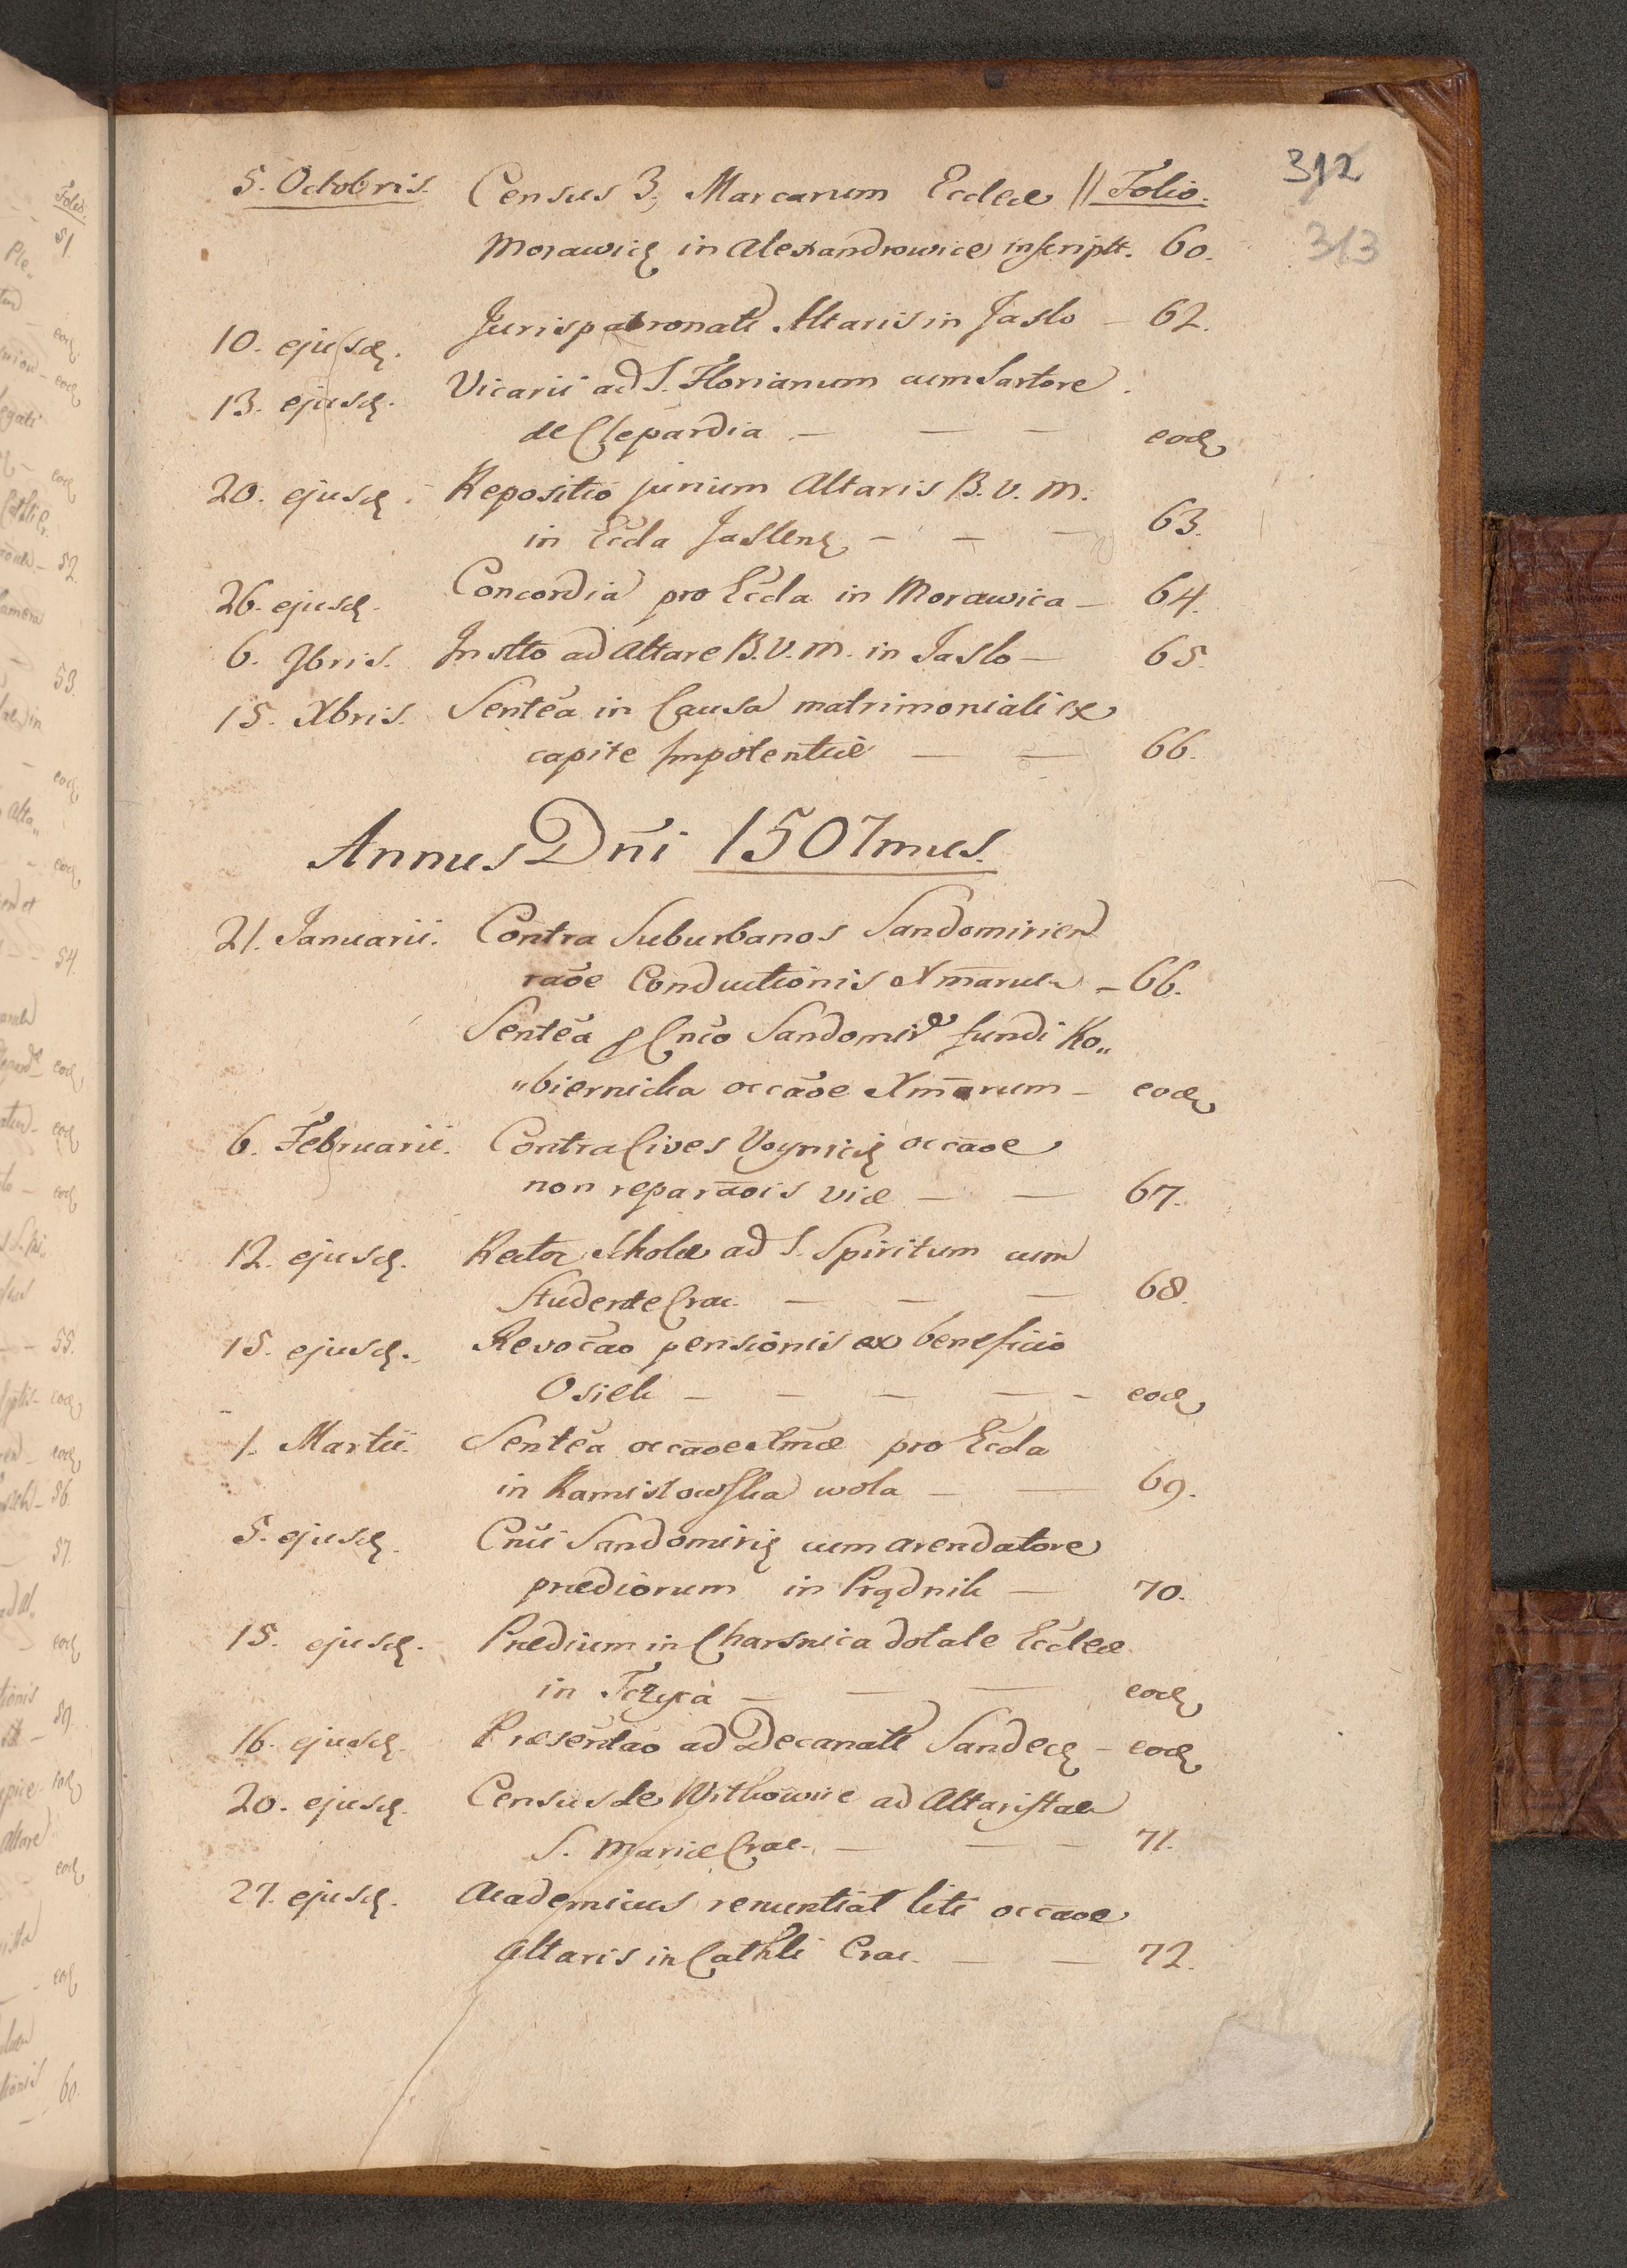 312
313
5. Octobris. Census 3, Marcarum Eccleæ || Folio.
Morawicę in Alexandrowice inscriptt. 60.
10. ejusdę. Jurispatronatt Altaris in Jaslo - 62.
13. ejusdę. Vicarii ad S. Florianum cum Sartore
de Clepardia - - - eodę
20. ejusdę. Repositio jurium Altaris B. V. M.
in Ecc̄la Jaslenę - - - 63.
26. ejusdę. Concordia pro Ecc̄la in Morawica - 64.
6. 9bris. Instto ad Altare B. V. M. in Jaslo - 65.
15. Xbris. Sentēa in Causa matrimoniali ex
capite Impotentiæ - - 66.
Annus Dn̄i 1507mus.
21. Januarii. Contra Suburbanos Sandomirien
raōe Conductionis Xmarum - 66.
Sentēa Cnīo Sandomir fundi Ko„
„biernicka occāōe Xmarum - eodę
6. Februarii. Contra Cives Voynicię occāoe
non reparāōis viæ - - 67.
12. ejusdę. Rector Scholæ ad S. Spiritum cum
Studente Crac. - - - 68.
15. ejusdę. Revocāo pensionis ex beneficio
Osiek - - - - - eodę
1. Martii. Sentēa occāoe Xmæ pro Ecc̄la
in Kamisłowska wola - - 69.
5. ejusdę. Cnīi Sandomirię cum arendatore
prædiorum in Prądnik - 70.
15. ejusdę. Prædium in Charsnica dotale Eccleæ
in Tczyca - - - eodę
16. ejusdę. Præsentāo ad Decanatt Sandecę - eodę
20. ejusdę. Census de Witkowice ad Altaristam
S. Mariæ Crac. - - - 71.
27. ejusdę. Academicus renuntiat liti occāoe
Altaris in Cathli Crac. - - 72.